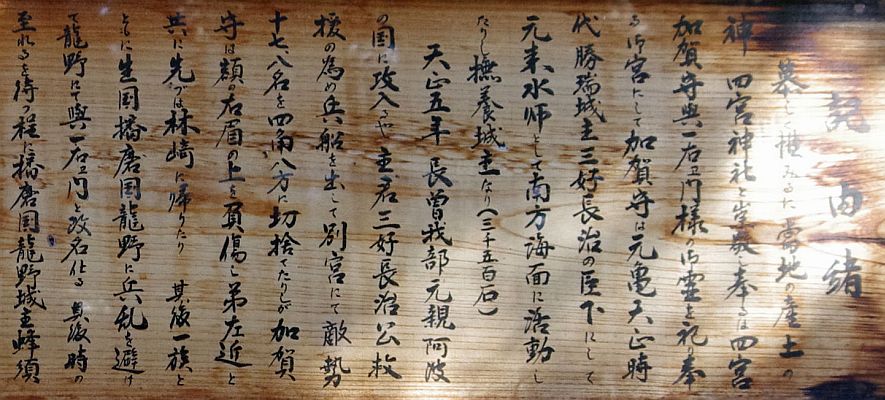 記由緒
慕して惟みるに當地の産土の
神四宮神社と崇敬奉るは四宮
加賀守與一右ヱ門様の御霊を祀り奉
る御宮にして加賀守は元亀天正時
代勝瑞城主三好長治の臣下にして
元来水師として南方海面に活動し
たりし撫養城主なり(三千五百石)
天正五年長曽我部元親阿波
の国に攻入るや主君三好長治公救
援の為め兵船を出して別宮にて敵勢
十七八名を四角八方に切捨てたりしが加賀
守は顔の右眉の上を負傷し弟左近と
共に先づは林崎に帰りたり其後一族と
ともに生国播磨国龍野に兵乱を避け
て龍野にて與一右ヱ門と改名仕る其後時の
至れるを待つ程に播磨国龍野城主蜂須